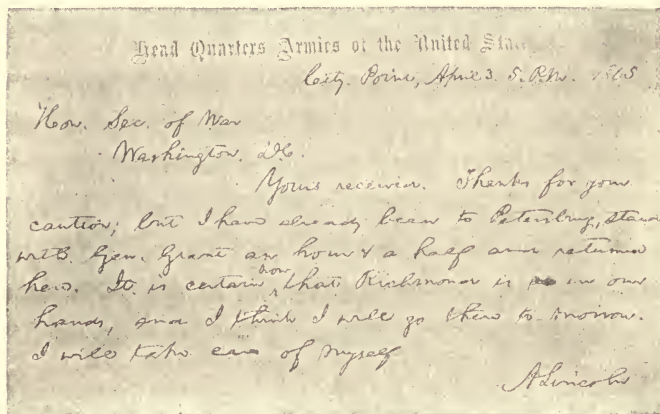 Head Quarters Armies of the United Stat
City Point, April 3. 5. P.M. 1865
Hon. Sec. of War
Washington, D.C.
Yours received. Thanks for your
caution; but I have already been to Petersburg, staid
with Gen. Grant an hour & a half and returned
here. It is certain now that Richmond is in our
hands, and I think I will go there to-morrow.
I will take care of myself
A Lincoln